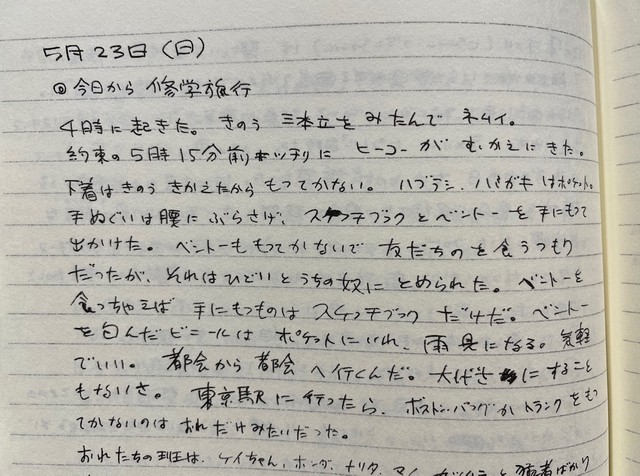 5月23日(日)
◎今日から 修学旅行
4時に起きた。きのう 三本立を みたんで ネムイ。
約束の5時15分前キッチリに ヒーコー が むかえにきた。
下着はきのう きかえたから もってかない。ハブラシ、ハミガキはポケット。
手ぬぐいは腰にぶらさげ、スケッチブックとベントーを手にもって
出かけた。ベントーももってかないで 友だちのを食うつもり
だったが、それはひどいとうちの奴にとめられた。ベントーを
食っちゃえば 手にもつものはスケッチブック だけだ。ベントー
を包んだビニールは ポケットにいれ、雨具になる。気軽
でいい。都会から都会へ行くんだ。大げさにすること
もないさ。東京駅に行ったら、ボストンバッグかトランクをもっ
てかないのは おれだけみたいだった。
おれたちの班は、ケイちゃん、ホンダ、ナリタ、